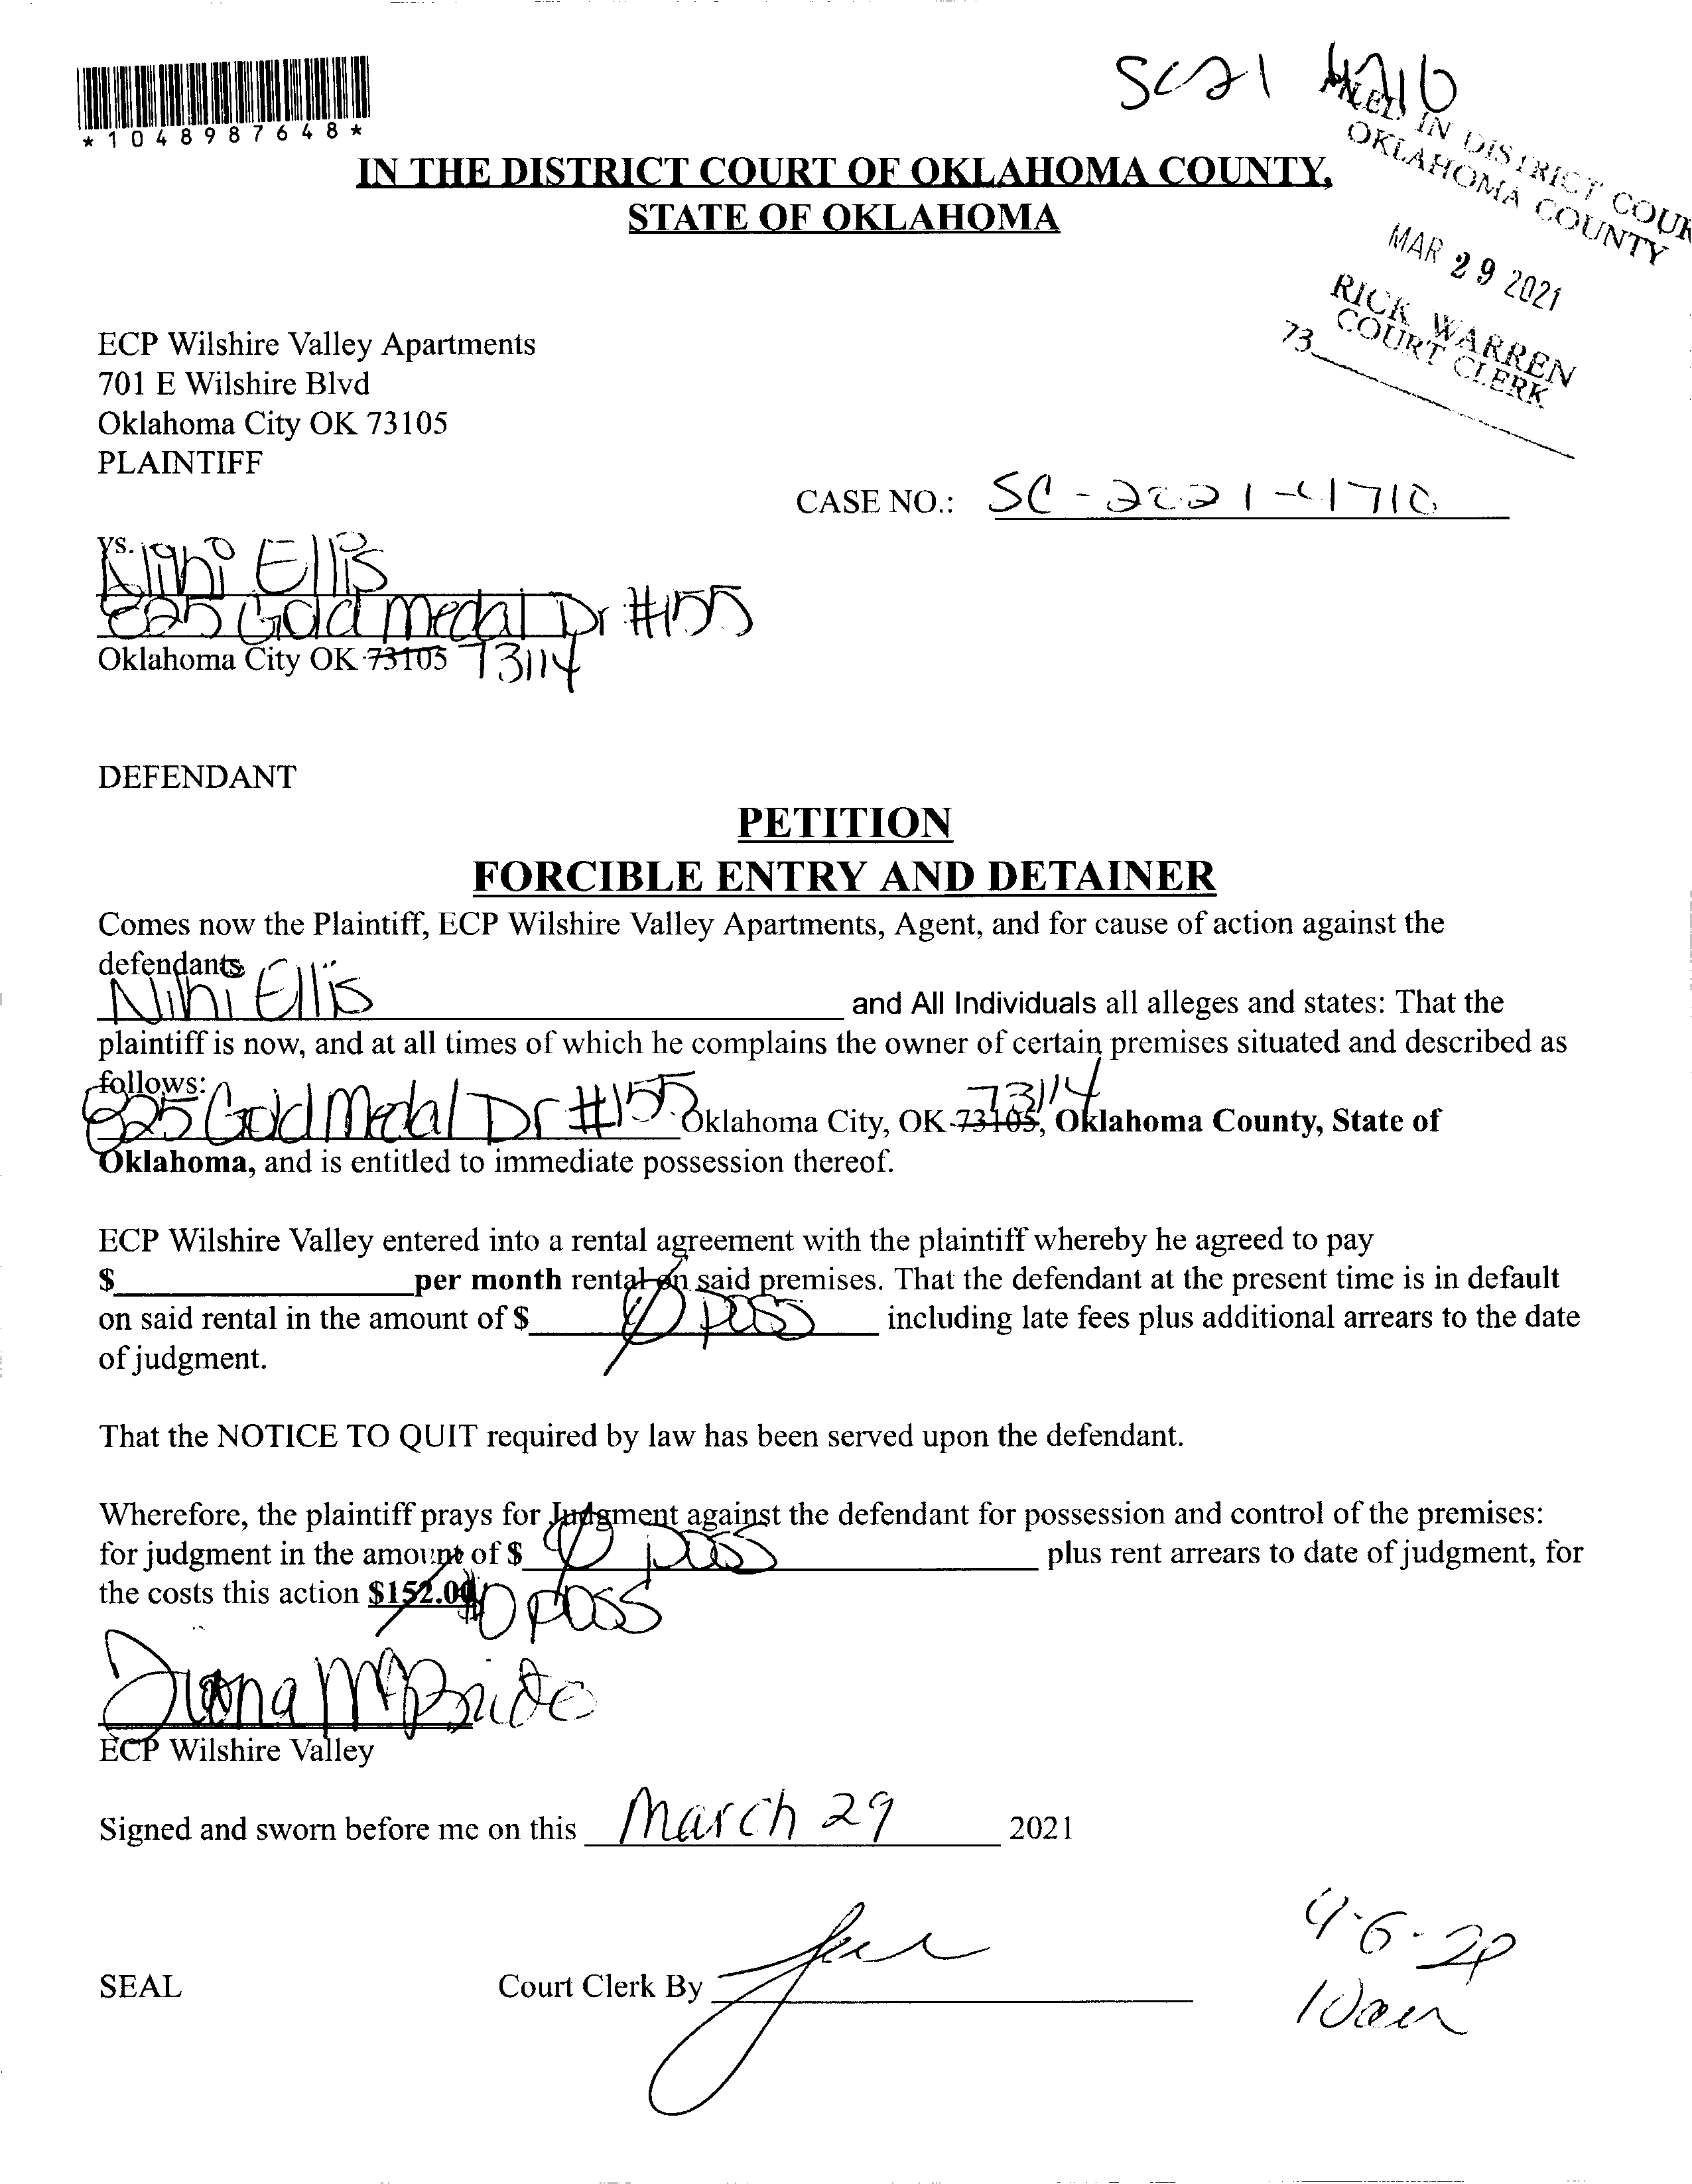 *1048987648*
SC21 4710
FILED IN DISTRICT COUR
OKLAHOMA COUNTY
MAR 29 2021
RICK WARREN
COURT CLERK
73
IN THE DISTRICT COURT OF OKLAHOMA COUNTY,
STATE OF OKLAHOMA
ECP Wilshire Valley Apartments
701 E Wilshire Blvd
Oklahoma City OK 73105
PLAINTIFF
CASE NO.: SC-2021-4710
vs.
Nihi Ellis
825 Gold Medal Dr #155
Oklahoma City OK 73105 73114
DEFENDANT
PETITION
FORCIBLE ENTRY AND DETAINER
Comes now the Plaintiff, ECP Wilshire Valley Apartments, Agent, and for cause of action against the
defendants
Nihi Ellis and All Individuals all alleges and states: That the
plaintiff is now, and at all times of which he complains the owner of certain premises situated and described as
follows:
825 Gold Medal Dr #155 Oklahoma City, OK 73105, 73114 Oklahoma County, State of
Oklahoma, and is entitled to immediate possession thereof.
ECP Wilshire Valley entered into a rental agreement with the plaintiff whereby he agreed to pay
$ per month rental on said premises. That the defendant at the present time is in default
on said rental in the amount of $ 0 poss including late fees plus additional arrears to the date
of judgment.
That the NOTICE TO QUIT required by law has been served upon the defendant.
Wherefore, the plaintiff prays for Judgment against the defendant for possession and control of the premises:
for judgment in the amount of $ 0 poss plus rent arrears to date of judgment, for
the costs this action $152.00 $0 poss
Diana McBride
ECP Wilshire Valley
Signed and sworn before me on this March 29 2021
SEAL Court Clerk By
4-6-21
10am